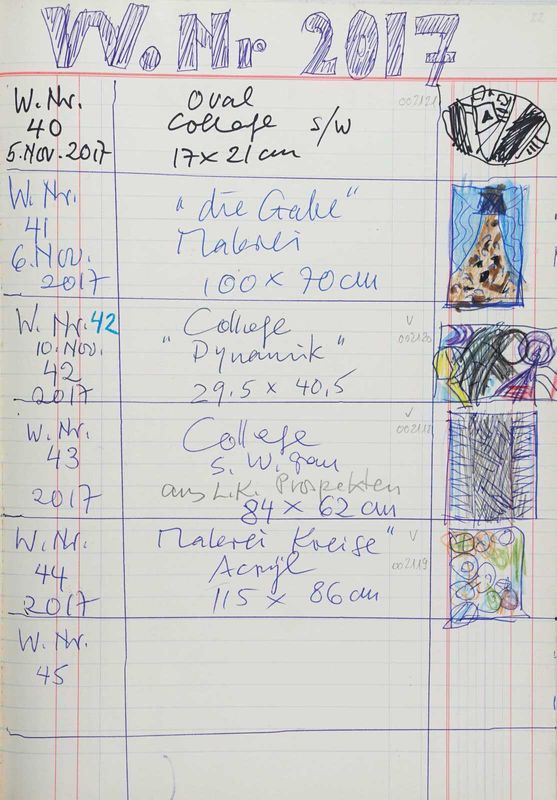 W. Nr 2017
22
W. Nr.
40
5. Nov. 2017
Oval
Collage s/w
17 x 21 cm
002121
W. Nr.
41
6. Nov.
2017
"die Gabe"
Malerei
100 x 70 cm
W. Nr. 42
10. Nov.
42
2017
"Collage
Dynamik"
29.5 x 40,5
v
002120
W. Nr.
43
2017
Collage
s. W. grau
aus L.K. Prospekten
84 x 62 cm
v
W. Nr.
44
2017
Malerei Kreise"
Acryl
115 x 86 cm
v
002119
W. Nr.
45